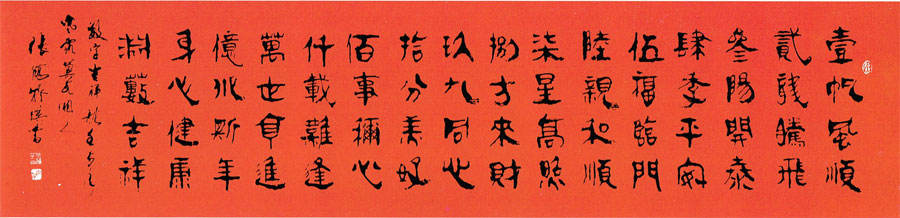 壹帆風順
貳龍騰飛
叁陽開泰
肆季平安
伍福臨門
陸親和順
柒星高照
捌方來財
玖九同心
拾分美好
佰事稱心
仟載難逢
萬世進
億兆斯年
身心健康
吉祥
數字吉祥
張書